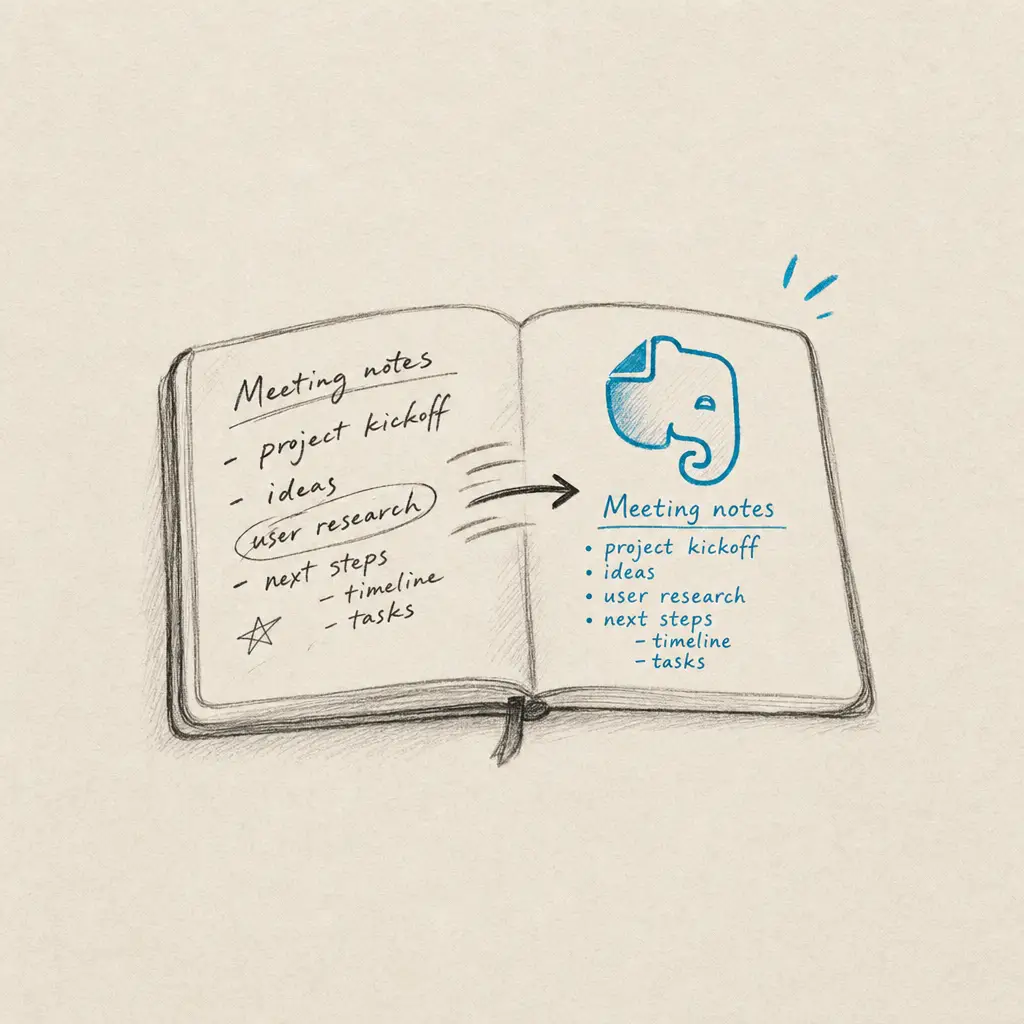 Meeting notes
- project kickoff
- ideas
user research
- next steps
- timeline
- tasks
Meeting notes
• project kickoff
• ideas
• user research
• next steps
- timeline
- tasks